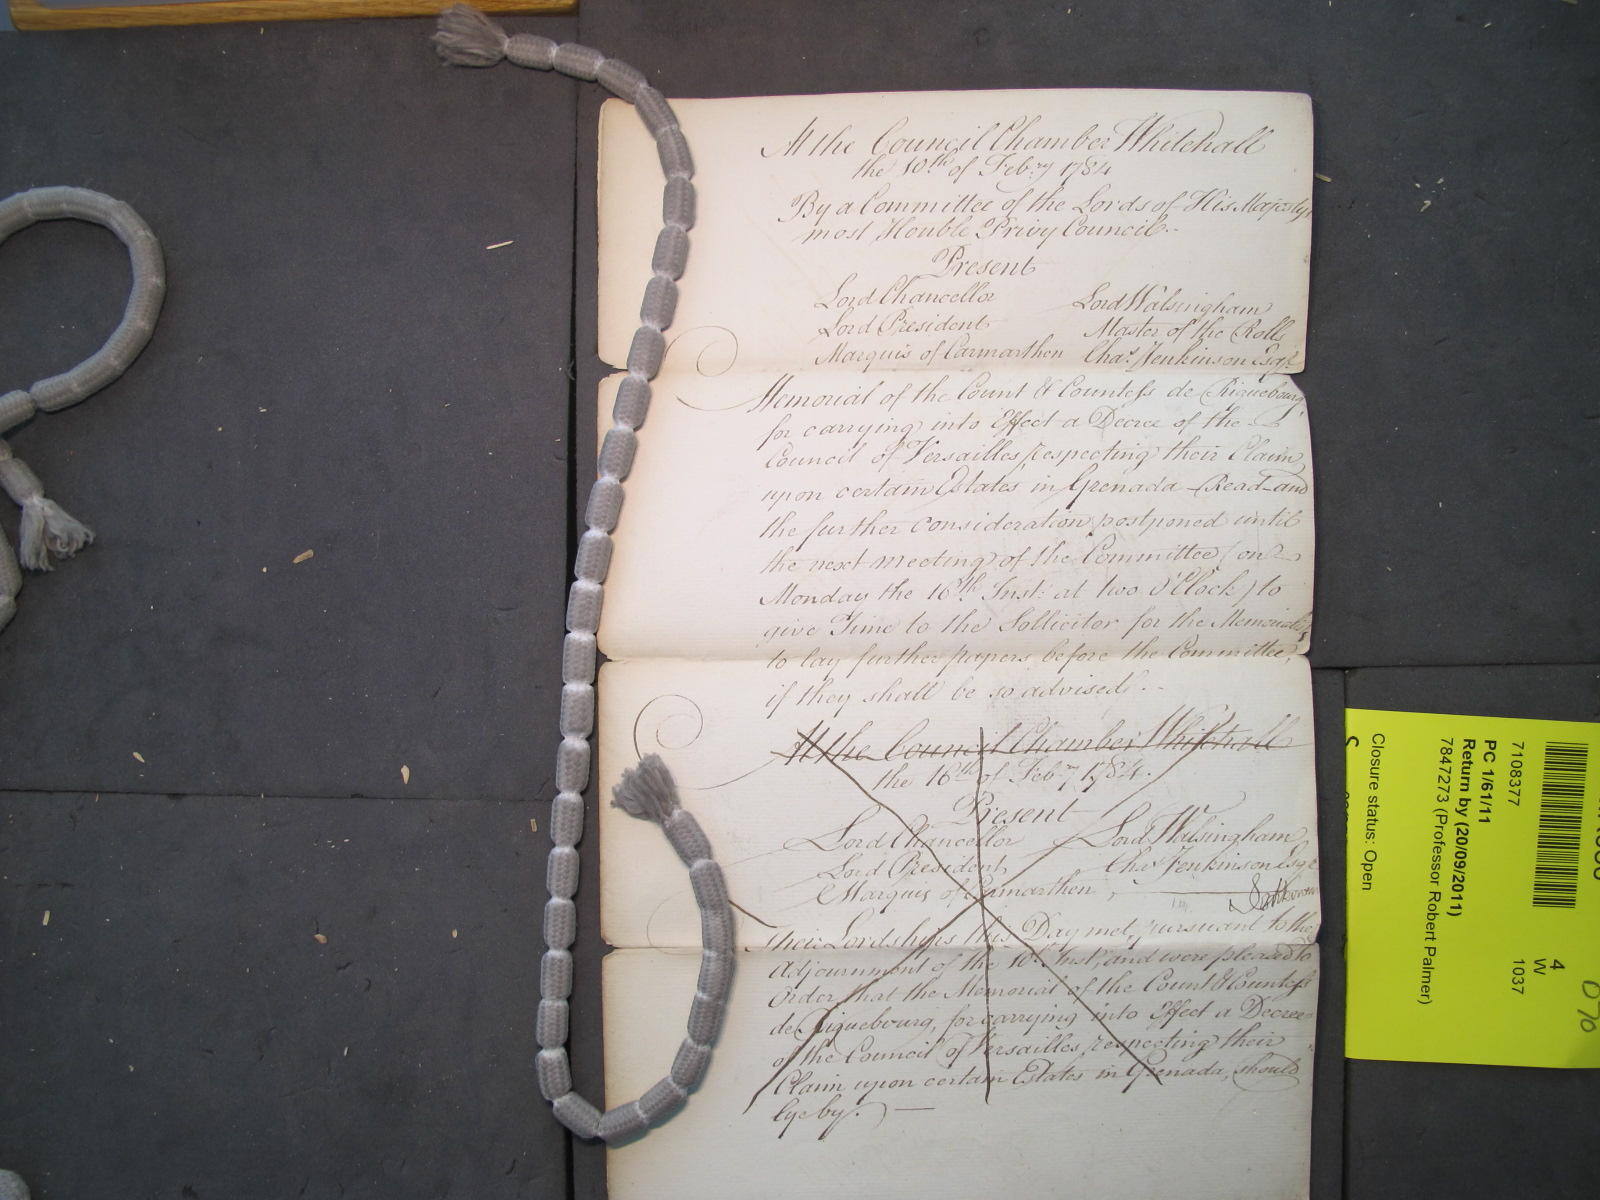 At the Council Chamber Whitehall
the 10th of Febry 1784
By a Committee of the Lords of His Majestys
most Honble Privy Council.
Present
Lord Chancellor Lord Walsingham
Lord President Master of the Rolls
Marquis of Carmarthen Chas Jenkinson Esqr
Memorial of the Count & Countess de Riquebourg
for carrying into Effect a Decree of the
Council of Versailles respecting their Claim
upon certain Estates in Grenada - Read - and
the further consideration postponed until
the next meeting of the Committee (on
Monday the 16th Inst: at two o'Clock) to
give Time to the Sollicitor for the Memorialists
to lay further papers before the Committee,
if they shall be so advised.
At the Council Chamber Whitehall
the 16th of Febry 1784.
Present
Lord Chancellor Lord Walsingham
Lord President Chas Jenkinson Esqr
Marquis of Carmarthen
Their Lordships this Day met, pursuant to the
Adjournment of the 10th Inst, and were pleased to
Order that the Memorial of the Count & Countess
de Riquebourg, for carrying into Effect a Decree
of the Council of Versailles, respecting their
Claim upon certain Estates in Grenada, should
lye by.
7108377
PC 1/61/11
Return by (20/09/2011)
7847273 (Professor Robert Palmer)
Closure status: Open
4
W
1037